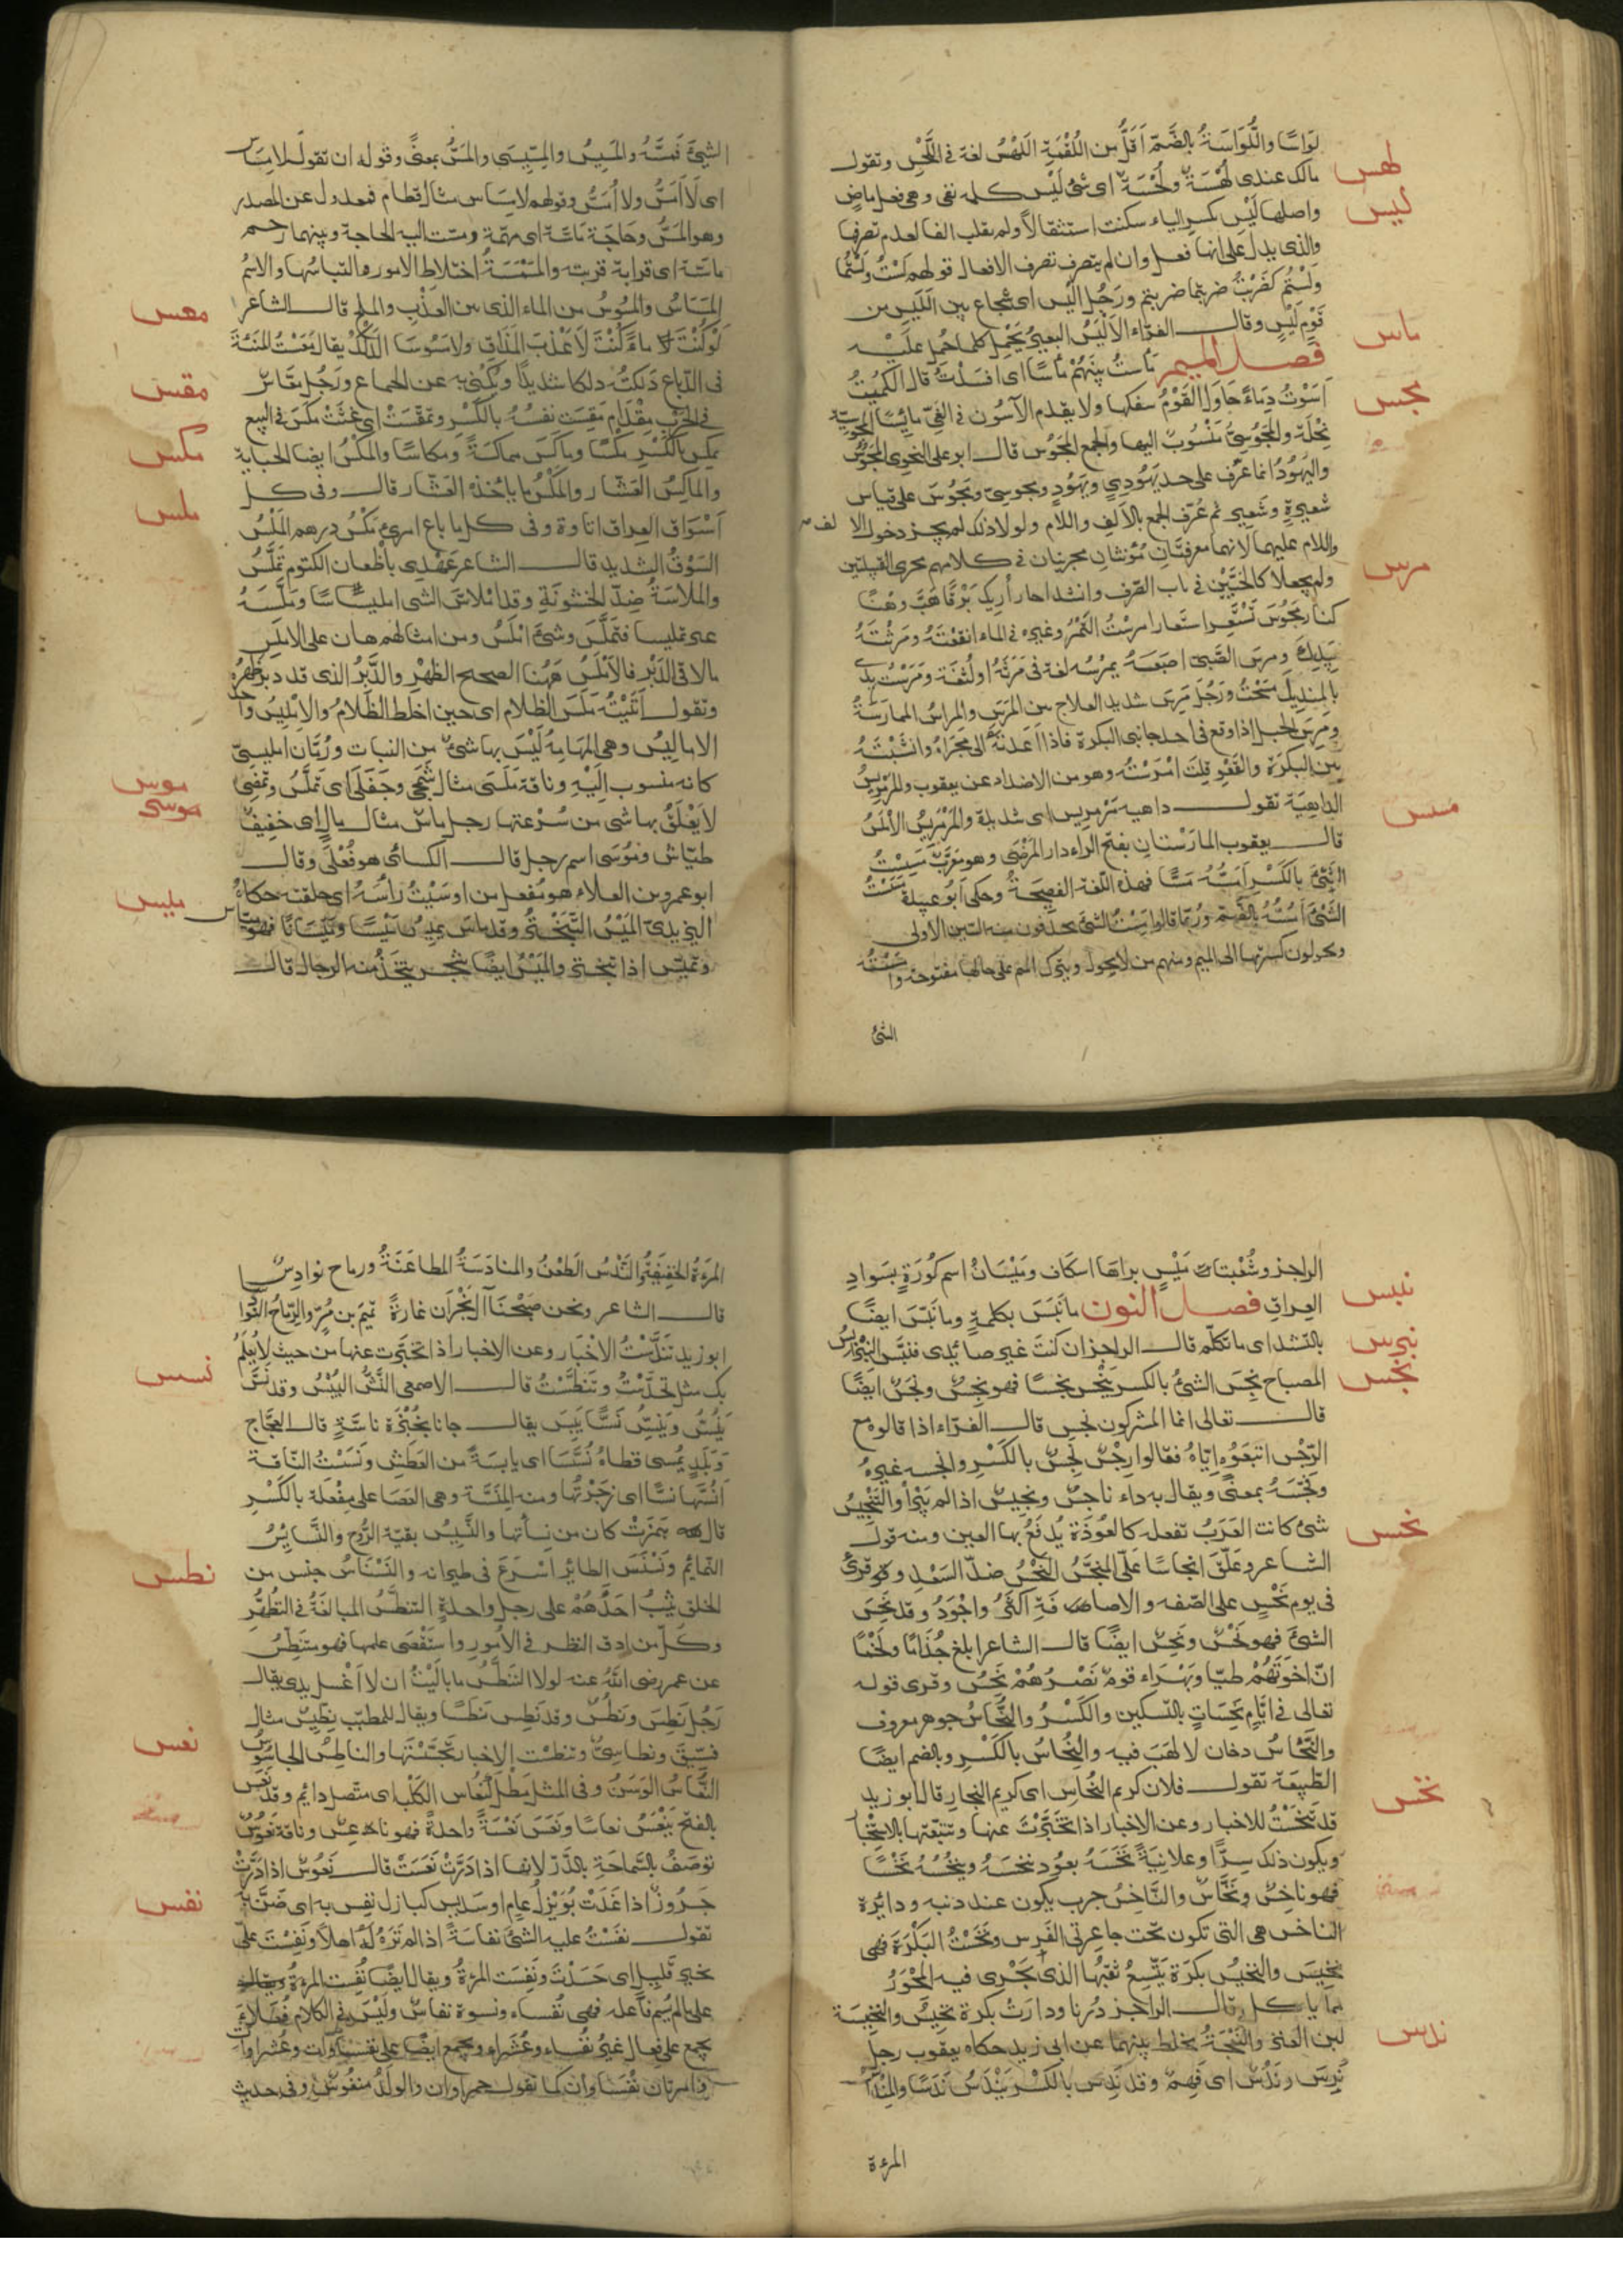 لواسًا واللُّواسَةُ بالضَّمّ اَقَلُّ من اللُّقْمَةِ اللَهْسُ لغة فى اللَّحْسِ وتقول
لهس
مالك عندى لُهْسَةٌ ولُحْسَةٌ اى شئ لَيْسَ كلمه نفى وهى فعل ماضٍ
ليس
واصلها لَيِسَ بكسر الياء سكنت استثقالاً ولم تقلب الفا لعدم تصرفها
والذى يدل على انها فعل وان لم يتصرف تصرف الافعال قولهم لَسْتُ ولَسْتُما
ولَسْتُم كقَرْبتُ ضربتما ضربتم ورَجُل اَلْيَس اى شجاع بين اللَيَس من
قَوْم لِيسٍ وقال الفرّاء الاَلْيَسُ البعيرُ يَحْمِلُ كلما حُمِل عليه
فصل الميم مأستُ بينَهُمْ مَأْسًا اى افسَدْتُ قال الكميتُ
ماس
اَسَوْتُ دِماءً حَاوَلَ القَوْمُ سفكها ولا يقدم الآسُون فى الغىّ مايُسًا المجوسيّة
مجس
نِحْلَة والمَجُوسىُّ مَنْسُوبٌ اليها والجمع المَجُوس قال ابو على النحوى المَجُوسُ
واليَهُودُ انما عُرِّف على حد يَهُودِىٍ ويَهُودٍ ومجوسىّ ومَجُوسَ على قياس
شعيرةٍ وشَعِيرٍ ثم عُرّف الجمع بالاَلِف واللام ولولا ذلك لم يجز دخول الالف
واللام عليهما لانهما معرفتان مُؤنثان مجريان فى كلامهم مجرى القبيلتين
ولم يجعلا كالحَيَّيْن فى باب الصّرف وانشد احار اُرِيك بَرْقًا هَبَّ وَهْنًا
مرس
كنار مَجُوسَ تَسْتَعِرُ استعارا مرسْتُ التَمْرُ وغيره فى الماء انقعْتَهُ ومَرَثْتَهُ
بِيَدِكَ ومرس الصَّبىّ اصبَعَهُ يمرُسُه لغة فى مَرَثَهُ او لُثْغَة ومَرَسْتُ يدى
بالمِنديل مَسَحْتُ ورَجُل مَرِس شديد العلاج من المَرَس والمِراسُ الممارَسَةُ
ومَرِسَ الحبل اذا وقع فى احد جانبى البكرة فاذا اَعدْتَهُ الى مجراهُ وانشَبْتَهُ
بين البكرَة والقعو قلت امْرَسْتُه وهو من الاضداد عن يعقوب والمَرْمَرِيسُ
الداهِيَة تقول داهيه مَرْمريس اى شديدة والمَرْمَرِيسُ الاَمْلَسُ
مسس
قال يعقوب المارَسْتان بفتح الراء دار المَرْضَى وهو مُعَرَّب مَسِسْتُ
الشَّئَ بالكَسْر اَمَسُّه مَسًّا فهذه اللّغة الفصِيحَةُ وحكى اَبُو عبيدة مَسَسْتُ
الشَّئَ اَمُسُّهُ بالضَّم ورُبَّما قالوا مِسْتُ الشئَ يحذفون منه السّين الاولى
ويحولون كسرتها الى الميم ومنهم من لا يحول ويترك الميم على حالها مفتوحة وامْسَسْتُه
الشئ
الشئَ فَمَسَّهُ والمَسِيسُ والمِسِّيسَى والمَسُّ بمعنًى وقوله ان تقول لا مِسَاسَ
اى لَا اَمَسُّ ولا اُمَسُّ وقولهم لا مَسَاس مثال قطام فمعدول عن المصدر
وهو المَسُّ وحَاجَة مَاسَّة اى مهمَّة ومسّت اليه الحاجة وبينهما رحم
ماسّة اى قرابة قريبة والمَسْمَسَةُ اختلاط الامور والتباسُها والاسْمُ
المَسَاسُ والمَسُوسُ من الماء الذى بين العذْب والملح قال الشاعر
معس
لَوْ كُنْتَ مَاءً كُنْتَ لاَ عَذْبَ المَذَاقِ ولا مَسُوسَا الدَّلْكُ يقال مَعَسْتُ المَنِئَةَ
فى الدّباغ دَلكتُه دلكا شديدًا ويُكنى به عن الجماع ورَجُل مَعَّاس
مقس
فى الحَرْب مِقْدَام مَقِسَت نفسُهُ بالكَسْر وتمقّسَتْ اى غثَتْ مكَسَ فى البيع
مكس
يمكِسُ بالكَسْرِ مَكْسًا وماكَس مماكسَةً ومكاسًا والمَكْسُ ايضا الجباية
والماكِسُ العشّار والمَكْسُ ما ياخذه العشّار قال وفى كل
ملس
اَسْوَاق العراق اتاوة وفى كل ما باع امرئ مَكْسُ درهم المَلْسُ
السَوْقُ الشديد قال الشاعر عَهْدِى باَظْعان الكتوم تملّسُ
والمَلاسَةُ ضِدّ الخشُونَةِ وقد امْلاسَّ الشى امليسَاسًا ومَلّسَهُ
غيره تمليسا فتملّسَ وشئ امْلَسُ ومن امثالهم هان على الاملس
مالاقى الدَّبِرُ فالاَمْلسُ هَهُنا الصحيح الظهْرِ والدَّبِرُ الذى قد دبر ظهْرهُ
وتقول اَتَيْتُه مَلسَ الظلام اى حين اختلط الظَلامُ والامْلِيسُ واحد
الامالِيْس وهى المَهامِهُ لَيْسَ بها شئ من النبات ورُمّان امليسِىّ
كانه منسوب اِلَيْهِ وناقة مَلَسَى مثال شَمَجَى وجَفَلَى اى تملّسُ وتمضِى
موس
لايَعْلَقُ بها شى من سُرْعتها رجل ماسٌ مثال مالٍ اى خفيفٌ
موسى
طيّاش ومُوسَى اسم رجل قال الكسائى هو فُعْلَى وقال
ابو عمرو بن العلاء هو مُفعل من اوسَيْتُ رأسَهُ اى حلقته حكاهُ
ميس
اليزيدىّ المَيْسُ التَّبَخْتُر وقد ماسَ يميسُ مَيْسًا ومَيَسانًا فهو ميّاس
وتميّس اذا تبختر والمَيْسُ ايضًا شجر يتّخذُ منه الرحال قال
الراجز وشُعْبتا مَيْسٍ براها اسكاف ومَيْسَانُ اسم كُورَةٍ بسَوادِ
العراق فصل النون ما نَبَسَ بكلمةٍ وما نَبّسَ ايضًا
نبس
بالتشديد اى ما تكلّم قال الراجز ان كنتَ غير صائدى فنبّس النِبْراسُ
نبرس
المصباح نجِسَ الشئُ بالكسر يَنْجَس نجَسًا فهو نجِسٌ ونَجَسٌ ايضًا
نجس
قال تعالى انما المشركون نجس قال الفرّاء اذا قالوه مع
الرّجْس اتبَعُوه اِيّاهُ فقالوا رِجْسٌ نِجْسٌ بالكَسْرِ وانجسه غيرهُ
ونجّسَهُ بمعنًى ويقال به داء ناجسٌ ونجيسٌ اذا لم يَبْرَأ والتَنْجِيسُ
شئ كانت العَرَبُ تفعله كالعُوذَة يُدفَعُ بها العين ومنه قول
نحس
الشاعر وعَلّقَ انجاسًا عَلىّ المنجّسُ النَحْسُ ضدّ السَعْدِ وقرئ
فى يوم نَحْسٍ على الصّفه والاضافَة اَكْثَر واجْوَدُ وقد نَحِسَ
الشئ فهو نَحْسٌ ونَحِسٌ ايضًا قال الشاعر ابلغ جُذَامًا ولَخْمًا
انّ اخوَتَهُمْ طيًّا وبَهْرَاءَ قومٌ نَصْرُهُمْ نَحِسُ وقرى قوله
تعالى فى ايّام نَحِسَاتٍ بالتسكين والكَسْر والنُّحَاسُ جوهر معروف
والنُّحَاسُ دخان لا لهَبَ فيه والنِّحَاسُ بالكَسْر وبالضم ايضًا
الطّبيعَة تقول فلان كريم النُّحاسِ اى كريم النجار قال ابو زيد
نخس
قد تنحّسْتُ للاخبار وعن الاخبار اذا تخبّرْتَ عنها وتتبّعْتها بالاستخبار
ويكون ذلك سِرًّا وعلانيَةً نَخَسَهُ بعُود ينخَسُه وينخُسُهُ نَخْسًا
فهو ناخِسٌ ونَخّاسٌ والنَّاخسُ جرب يكون عند ذنبه ودائِرَة
الناخس هى التى تكون تحت جاعِرتَى الفَرس ونَخَسْتُ البَكْرَةَ فهى
نخيس والنخِيسُ بكرَة يَتّسِعُ ثقبُها الذى يَجْرِى فيه المِحْوَرُ
مما ياكل قال الراجز دُرْنا ودَارَتْ بكْرة نخِيس والنخِيسَة
لبن العنز والنَعْجَةُ يخلط بينهما عن ابى زيد حكاه يعقوب رجل
ندس
نَدِسٌ ونَدُسٌ اى فَهِمٌ وقد نَدِس بالكَسْر يَنْدَسُ نَدَسًا والمِنْداسُ
المرءة
المرءة الخفيفَةُ والنَدْسُ الطَعْنُ والمنادَسَةُ المطاعَنَةُ ورماح نوادِسُ
قال الشاعر ونحن صَبَحْنَا آل نَجْرَان غارَةً تميم بن مُرّ والرِّماحُ النَّوَادِسَا
ابوزيد تَنَدّسْتُ الاخْبار وعن الاخبار اذا تخبّرت عنها من حيث لا يُعْلَمُ
بك مثل تحدّسْتُ وتَنَطّسْتُ قال الاصمعى النَّسُّ اليُبْسُ وقد نَسَّ
نسس
يَنُسُّ ويَنِسُّ نَسًّا يَبِسَ يقال جانا بخُبْزَةٍ ناسَّةٍ قال العجّاج
وبَلَدٍ يُمْسى قطاهُ نُسَّسَا اى يابسَةً من العَطَش ونَسَسْتُ النّاقة
اَنُسّهَا نسًّا اى زجَرْتُها ومنه المِنَسَّة وهى العَصَا على مِفْعَلة بالكَسْرِ
قال فان همزتْ كان من نسأتها والنَّسِيسُ بقيّة الرُّوح والنَّسايسُ
النّمايم ونَسْنَسَ الطائر اسْرَعَ فى طيرانه والنَّسْنَاسُ جنس من
نطس
الخلق يثِبُ احَدُهُمْ على رجلٍ واحدةٍ التنطّسُ المبالغَةُ فى التطَهُّرِ
وكلّ من اَدقّ النظر فى الاُمورِ واستَقْصَى علمها فهو متَنَطِّسٌ
عن عمر رضى اللّٰهُ عنه لولا التَنَطُّسُ ما باليْتُ ان لا اَغْسل يدى يقال
رَجُل نَطِسٌ ونَطُسٌ وقد نَطِس نَطَسًا ويقال للمطبّب نِطِّيسٌ مثال
فِسّيق ونطاسِىٌّ وتنطّسْتُ الاخبار تجسّسْتُهَا والناطِسُ الجاسُوسُ
نعس
النُّعَاسُ الوَسَنُ وفى المثل مَطْلٌ كَنُعَاس الكَلْب اى متّصل دائم وقد نَعَسَ
بالفتح يَنْعَسُ نعاسًا ونَعَسَ نَعْسَةً واحدةً فهو ناعِسٌ وناقة نَعُوسٌ
تُوصَفُ بالسَّماحَةِ بالدَّرِّ لانها اذا دَرَّتْ نَعَسَتْ قال نَعُوسٌ اذا دَرَّتْ
جَرُوزٌ اذا غَدَتْ بُوَيْزِلُ عامٍ او سَدِيس كبازل نفِس به اى ضَنَّ به
نفس
تقول نفِسْتُ عليه الشئَ نفاسَةً اذا لم تَرَهُ لَهُ اهلاً ونَفِسْتَ علىّ
بخير قَليلٍ اى حَسَدْتَ ونَفِسَت المرءةُ ويقال ايضًا نُفِسَت المرءةُ
على ما لم يُسَمّ فاعله فهى نُفَساء ونسوة نِفاسٌ ولَيْسَ فى الكلام فُعَلَاءُ
يجمع على فِعال غيرُ نُفَساء وعُشَراء ويجمع ايضًا على نفساوات وعُشَراوات
وامرءتان نُفَسَاوان كما تقول حمراوان والولدُ منفُوس وفى حديث